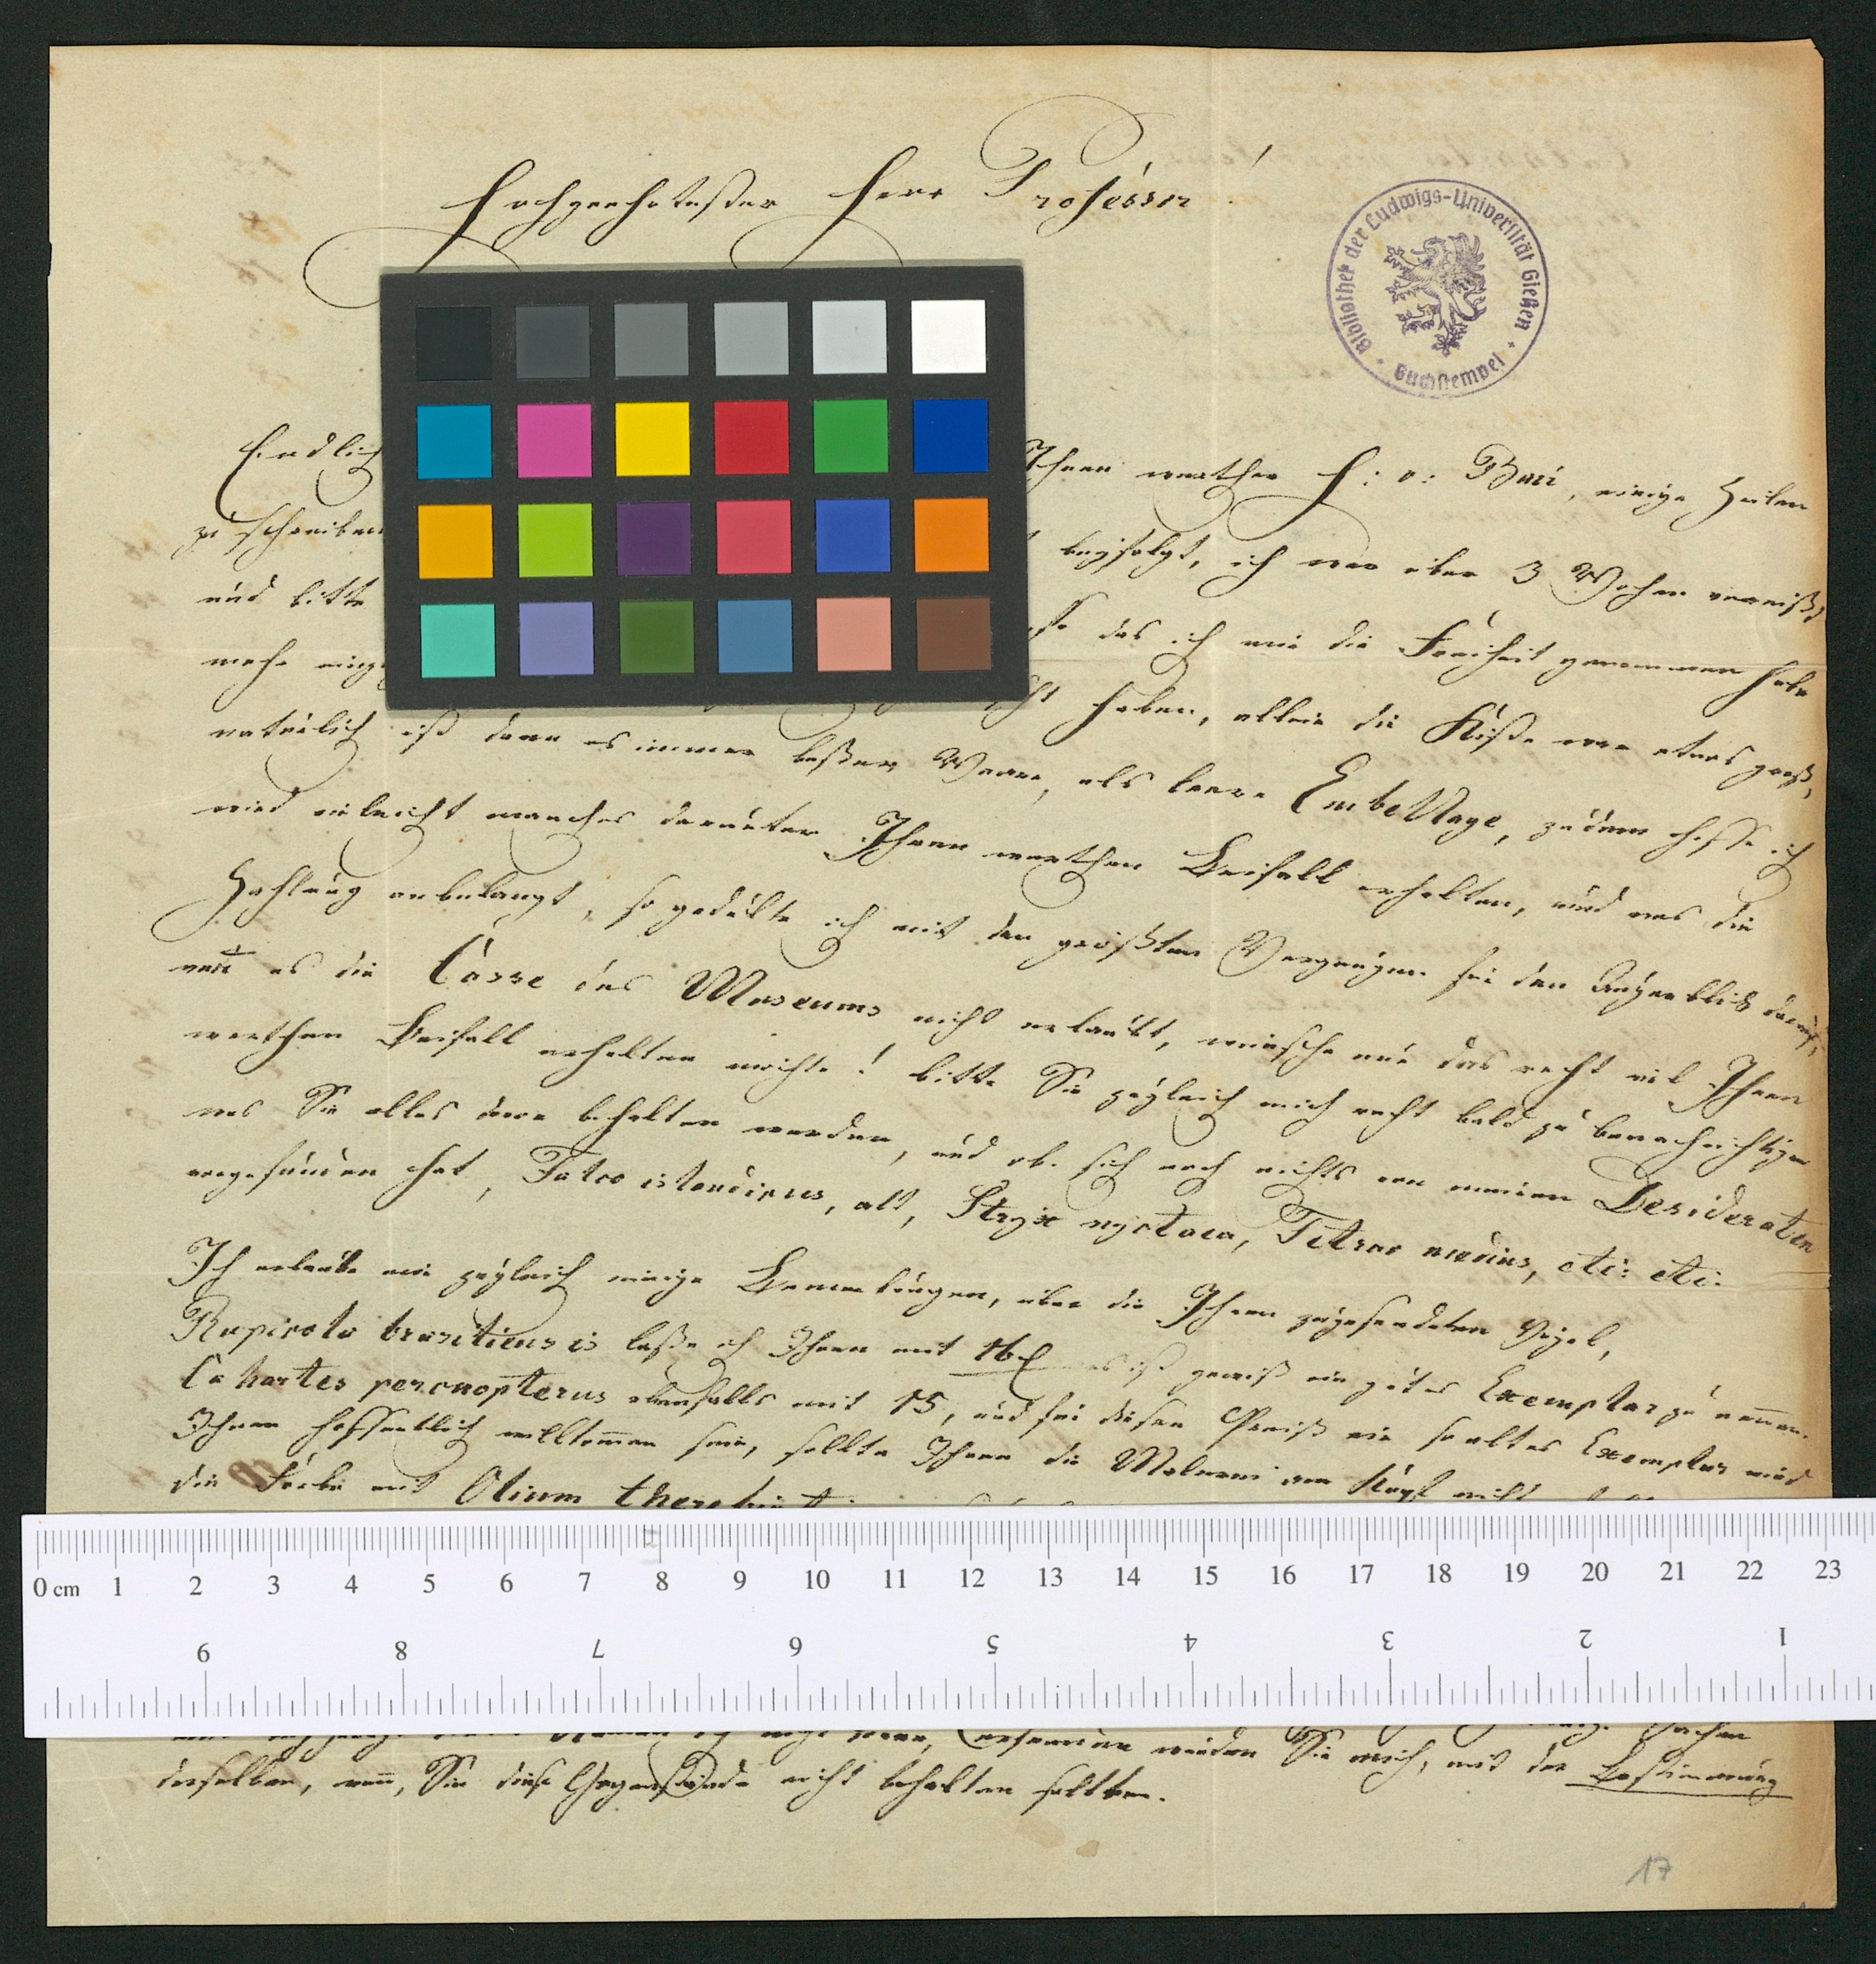 Hochgeehrtester Herr Professor!
Bibliothek der Ludwigs-Universität Gießen
Buchstempel
Endlich Ihnen werther H: v: Buri, einige Zeilen
zu schreiben beyfolgt, ich war über 3 Wochen verreißt
und bitte das ich mir die Freiheit genommen habe
mehr haben, allein die Kiste war etwas groß,
natürlich ist dann es immer beßer Waare, als leere Embellage, zudem hoffe ich
wird vieleicht manches darunter Ihren werthen Beifall erhalten, und was die
Zahlung anbelangt, so gedulte ich mit den größten Vergnügen bei den Augenblick darauf,
wen̄ es die Casse des Museums nicht erlaubt, wünsche nur das recht viel Ihren
werthen Beifall erhalten möchte! bitte Sie zugleich mich recht bald zu benachrichtigen
was Sie alles davon behalten werden, und ob sich noch nichts von meinen Desideraten
vorgefunden hat, Falco islandicus, alt, Stryx nyctaea, Tetrao medius, etc: etc:
Ich erlaube mir zugleich einige Bemerkungen, über die Ihnen zugesendeten Vögel,
Rupicola brasiliensis laße ich Ihnen mit 16 f es ist gewiß ein gutes Exemplar zu nennen.
Cahartes percnopterus ebenfalls mit 15, und für diesen Preiß ein so altes Exemplar wird
Ihnen hoffentlich willkommen sein, sollte Ihnen die Malerei am Kopf nicht
die Farbe mit Olium
0 cm 1 2 3 4 5 6 7 8 9 10 11 12 13 14 15 16 17 18 19 20 21 22 23
9 8 7 6 5 4 3 2 1
würden Sie mich, mit der Bestimmung
derselben, wen̄, Sie diese Gegenstände nicht behalten sollten.
17